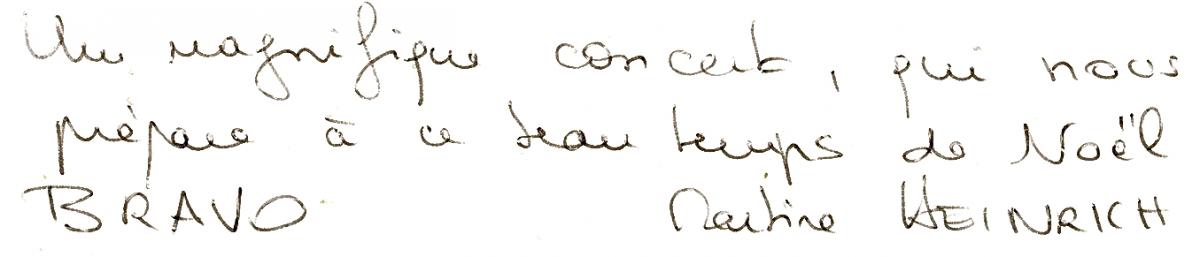 Un magnifique concert, qui nous
prépare à ce beau temps de Noël
BRAVO Martine HEINRICH